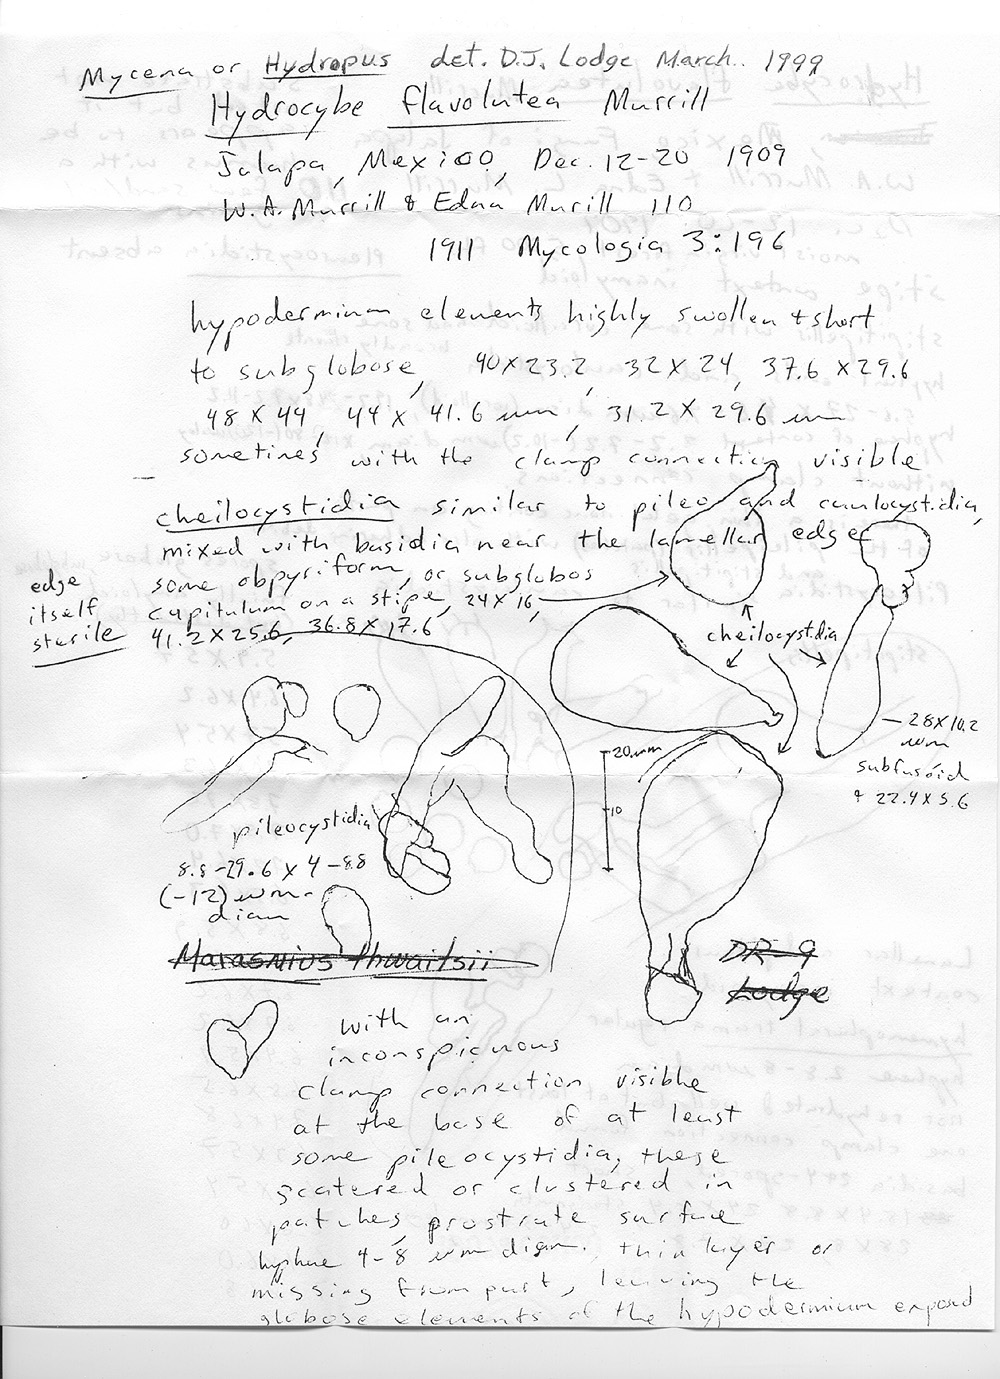 Mycena or Hydropus det. D.J. Lodge March. 1999
Hydrocybe flavolutea Murrill
Jalapa, Mexico, Dec. 12-20 1909
W.A. Murrill & Edna Murill 110
1911 Mycologia 3:196
hypodermium elements highly swollen + short
to subglobose, 40 x 23.2, 32 x 24, 37.6 x 29.6
48 x 44, 44 x 41.6 um, 31.2 x 29.6 um
sometimes with the clamp connection visible
cheilocystidia similar to pileo and caulocystidia,
mixed with basidia near the lamellar edge
some obpyriform, or subglobos
capitulum on a stipe, 24 x 16,
41.2 x 25.6, 36.8 x 17.6
edge
itself
sterile
cheilocystidia
28 x 10.2
um
subfusoid
+ 22.4 x 5.6
20 um
10
pileocystidia
8.8-29.6 x 4-8.8
(-12) um
diam
Marasmius thwaitsii
DR-9
Lodge
with an
inconspicuous
clamp connection visible
at the base of at least
some pileocystidia, these
scatered or clustered in
patches, prostrate surface
hyphae 4-8 um diam. thin layer or
missing from part, leaving the
globose elements of the hypodermium exposed